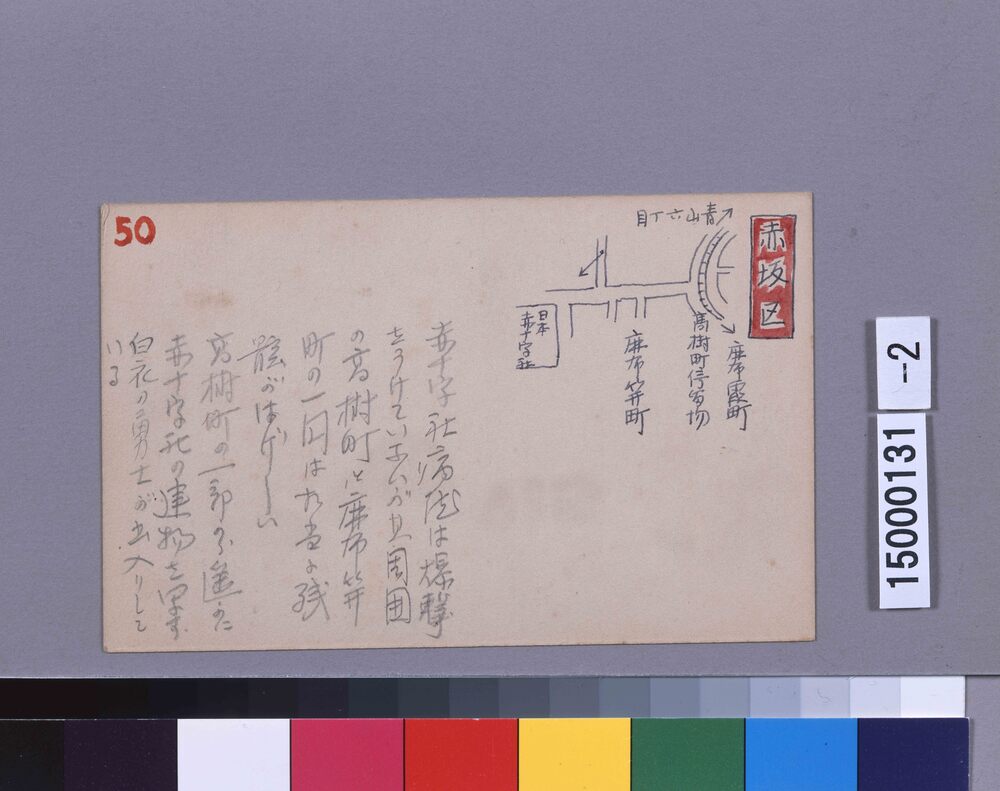 50
赤坂区
青山六丁目
麻布霞町
高樹町停留場
麻布笄町
日本
赤十字社
赤十字社病院は爆撃
をうけていないが其周囲
の高樹町と麻布笄
町の一円は相当な残
骸がはげしい
高樹町の一部から進んだ
赤十字社の建物を写す
白衣の勇士が出入りして
いる
15000131
-2